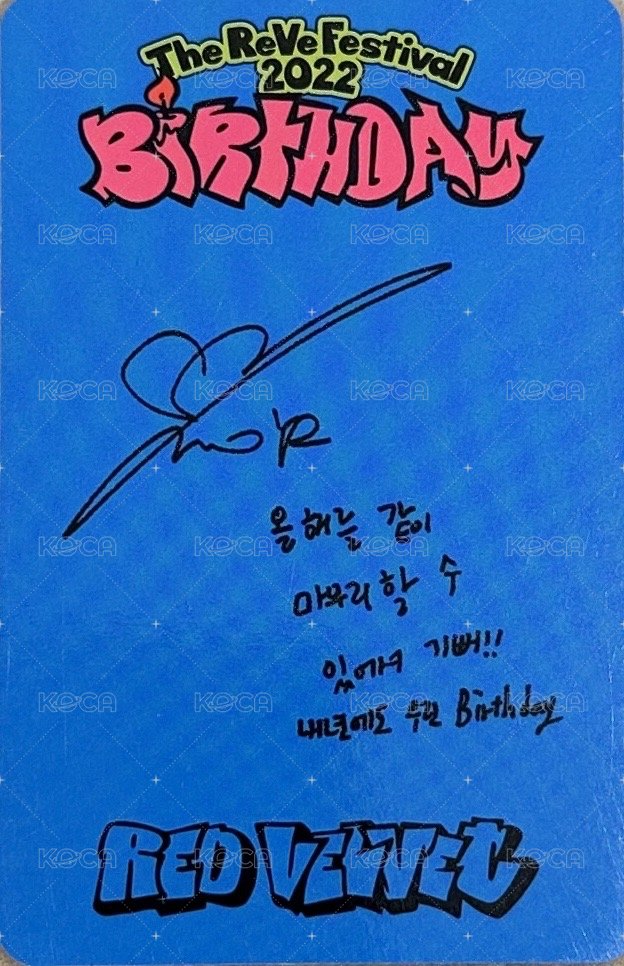 The ReVe Festival
2022
BiRTHDAY
올해를 같이
마무리 할 수
있어서 기뻐!!
내년에도 우린 Birthday
RED VELVET